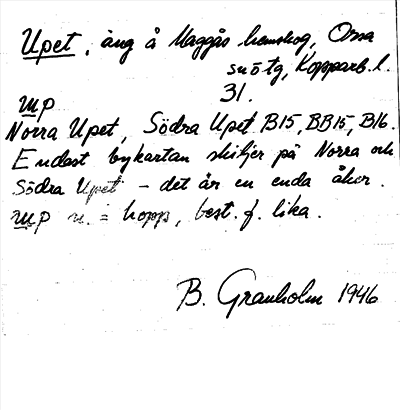 Upet, äng å Maggås hemskog, Orsa
sn ö tg, Kopparb. l.
31.
up
Norra Upet, Södra Upet B15, BB15, B16.
Endast bykartan skiljer på Norra och
Södra Upet - det är en enda åker.
up n. = hopp, best. f. lika.
B. Granholm 1946